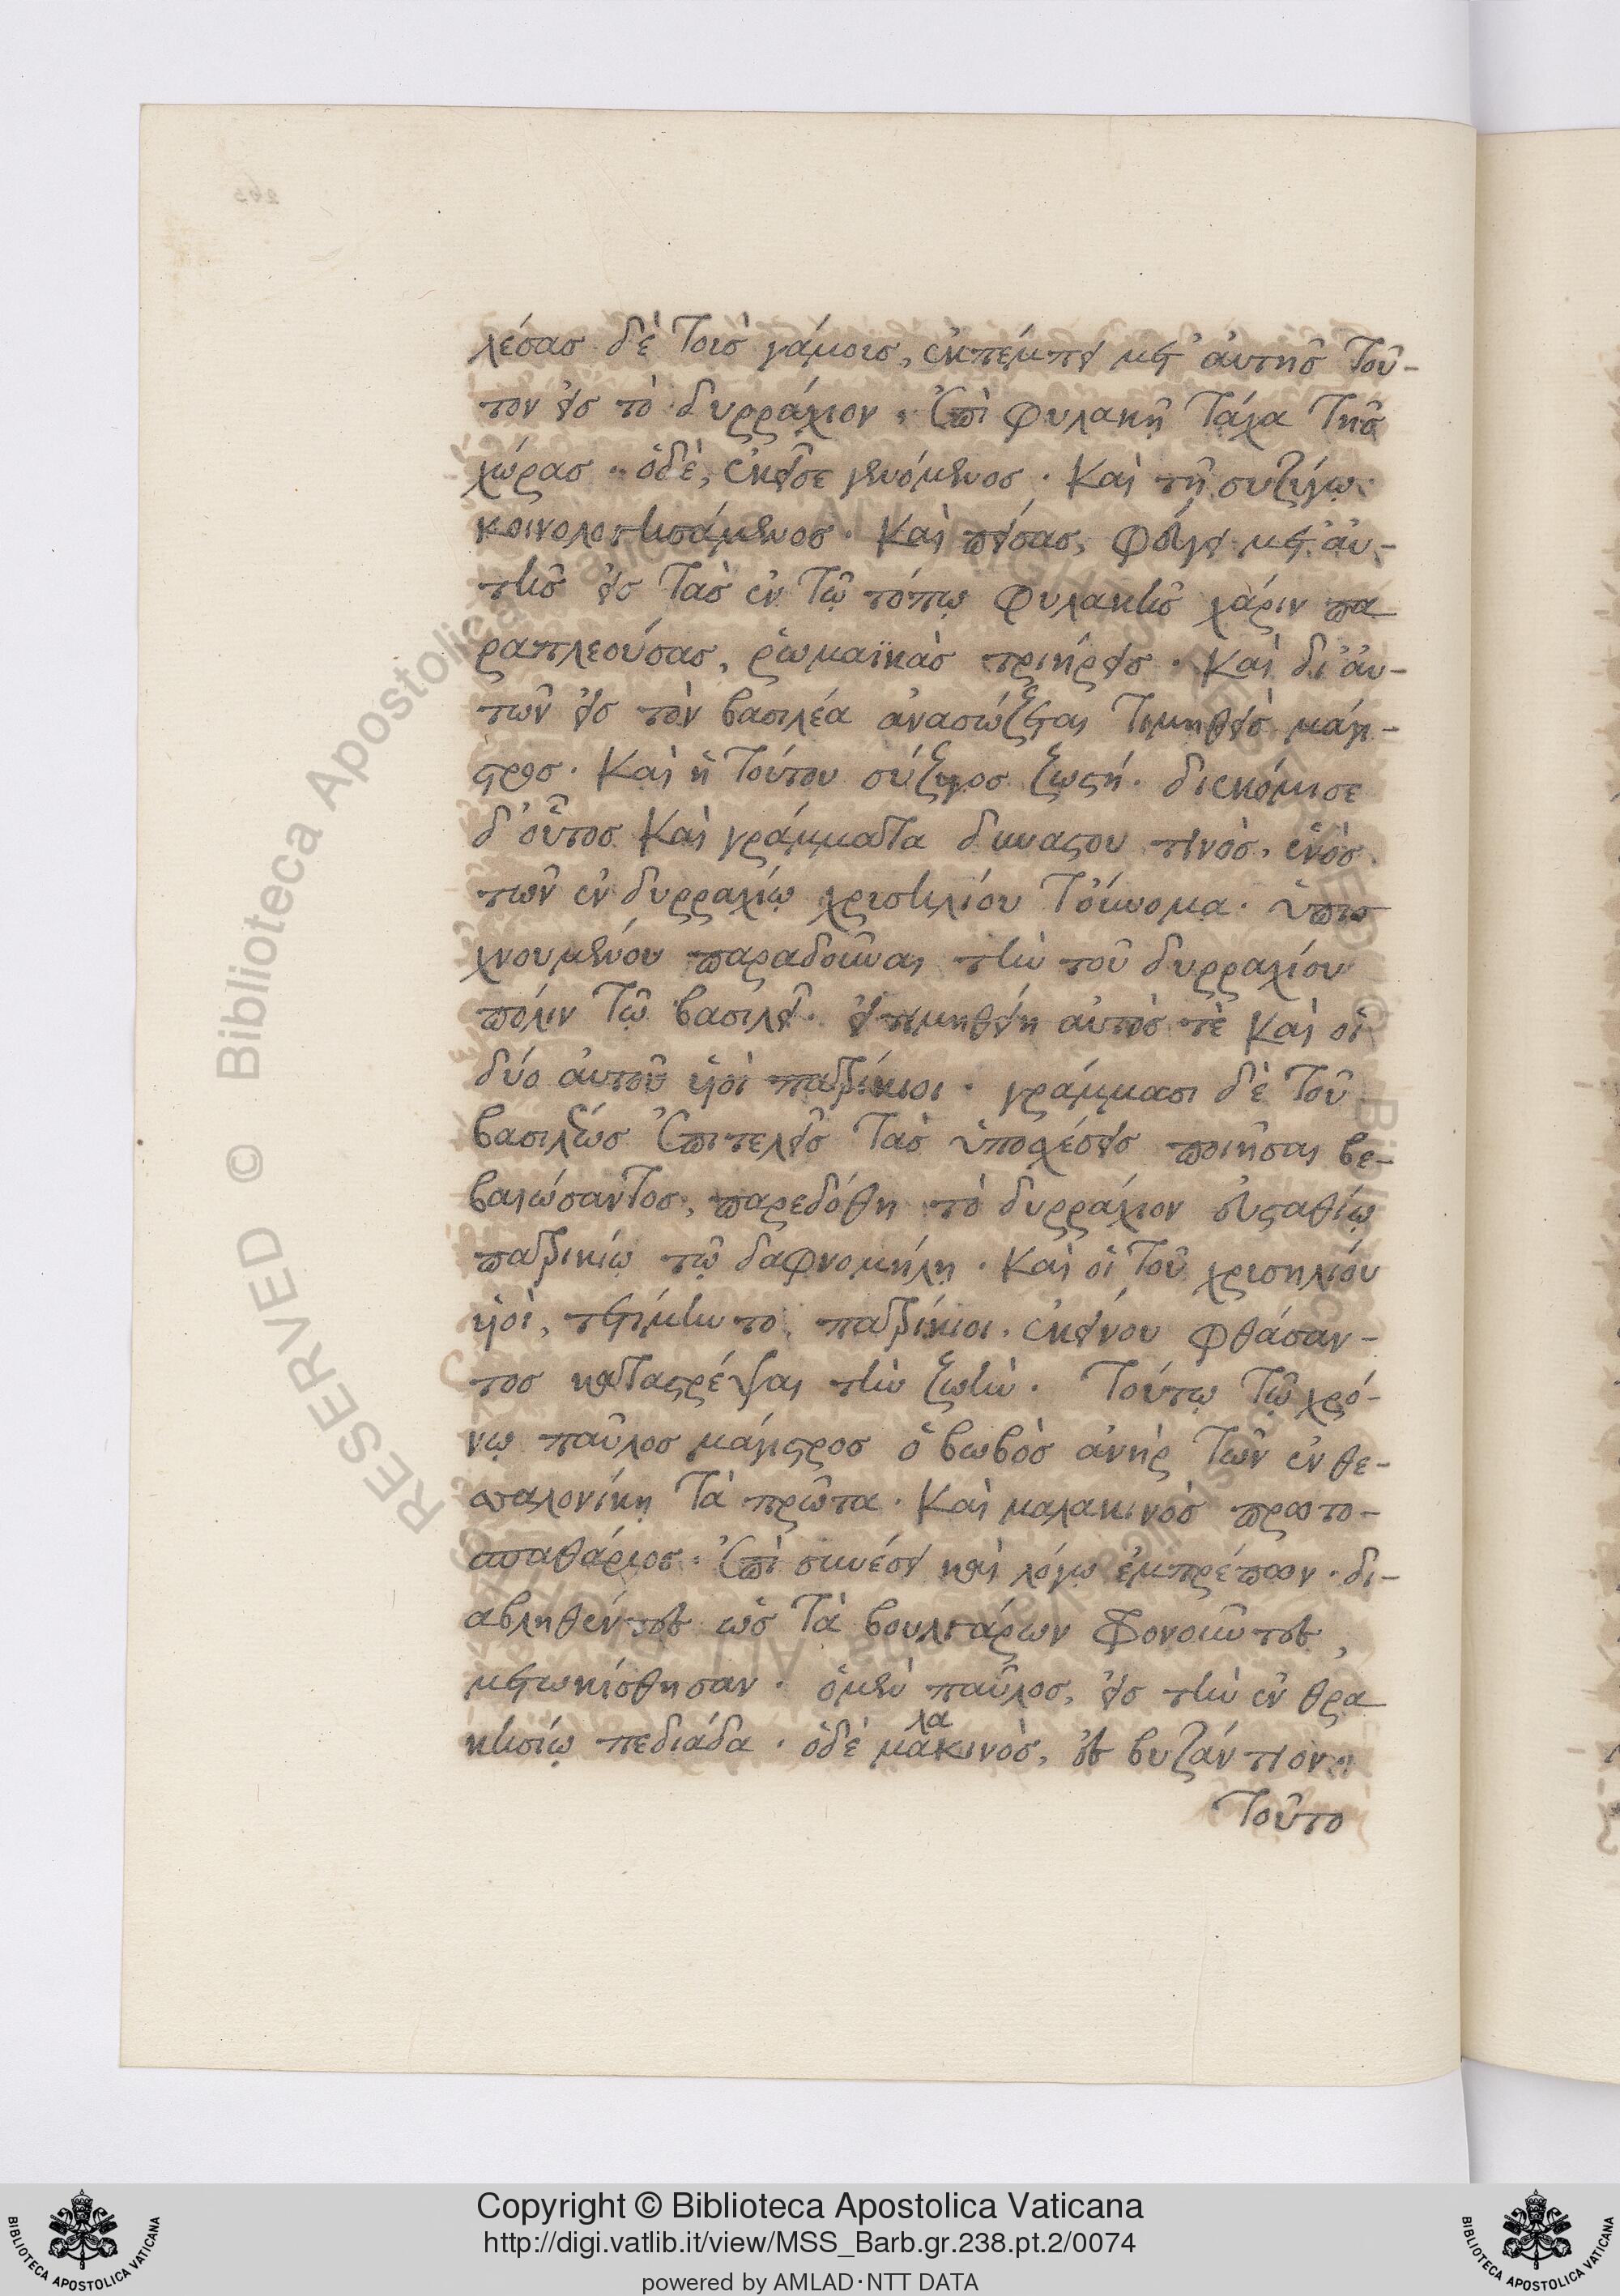 λέσασ δὲ τοισ γάμοισ, ἐκπέμπει μετ' ἀυτησ τοῦ-
τον εἰσ τὸ δυρράχιον, ἐπὶ φυλακῇ τάχα τησ
χώρασ. ὁδὲ, ἐκεῖσε γενόμενοσ. καὶ τῇ συζύγῳ
κοινολογησάμενοσ. καὶ πείσασ, φεύγει μετ' ἀυ-
τῆσ εἰσ τὰσ ἐν τῷ τόπῳ φυλακῆσ χάριν πα
ραπλεούσασ, ῥωμαϊκὰσ τριήρεισ. καὶ δι' ἀυ-
τῶν εἰσ τὸν βασιλέα ἀνασώζεται τιμηθεὶσ μάγι-
στροσ. καὶ ἡ τούτου σύζυγοσ ζωστή. διεκόμισε
δ' οὗτοσ καὶ γράμματα δυναστου τινὸσ, ἑνὸσ
τῶν ἐν δυρραχίῳ χρισηλίου τοὔνομα. ὑπισ
χνουμένου παραδοῦναι τὴν τοῦ δυρραχίου
πόλιν τῷ βασιλεῖ. εἰ τιμηθείη ἀυτὸσ τὲ καὶ οἱ
δύο ἀυτοῦ ὑιοὶ πατρίκιοι. γράμμασι δὲ τοῦ
βασιλέωσ ἐπιτελεῖσ τὰσ ὑποσχέσεισ ποιῆσαι βε-
βαιώσαντοσ, παρεδόθη τὸ δυρράχιον ἐυσταθίῳ
πατρικίῳ τῷ δαφνομήλῃ. καὶ οἱ τοῦ χρισηλίου
ὑιοὶ, τετίμηντο πατρίκιοι. ἐκείνου φθάσαν-
τοσ καταστρέψαι τὴν ζωὴν. τούτῳ τῷ χρό-
νῳ παῦλοσ μάγιστροσ ὁ βωβὸσ ἀνὴρ τῶν ἐν θε-
σσαλονίκῃ τὰ πρῶτα. καὶ μαλακινὸσ πρωτο-
σπαθάριοσ. ἐπὶ συνέσει καὶ λόγῳ ἐμπρέπων. δι-
αβληθέντεσ ὡσ τὰ βουλγάρων φρονοῦντεσ,
μετωκίσθησαν. ὁμὲν παῦλοσ, εἰσ τὴν ἐν θρα
κησίῳ πεδιάδα. ὁδὲ μαλακινὸσ, ἐσ βυζάντιον.
τοῦτο
Copyright © Biblioteca Apostolica Vaticana
http://digi.vatlib.it/view/MSS_Barb.gr.238.pt.2/0074
powered by AMLAD·NTT DATA